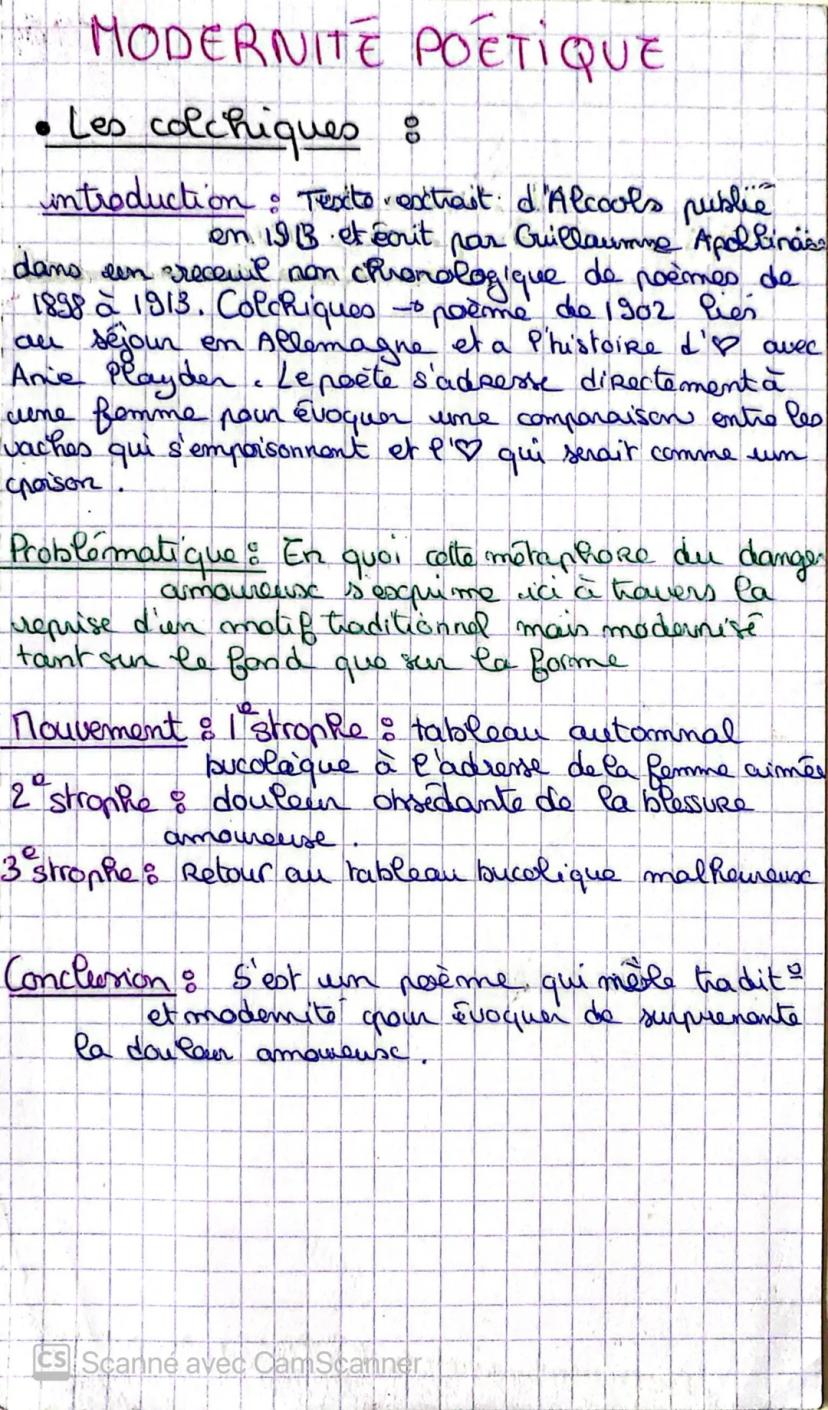 MODERNITÉ POÉTIQUE
• Les colchiques :
introduction : Texte extrait d'Alcools publié
en 1913 et écrit par Guillaumme Apollinaire
dans un receuil non chronologique de poèmes de
1898 à 1913. Colchiques → poème de 1902 liés
au séjour en Allemagne et a l'histoire d'♡ avec
Anie Playden. Le poète s'adresse directement à
une femme pour évoquer une comparaison entre les
vaches qui s'empoisonnent et l'♡ qui serait comme un
poison.
Problématique : En quoi cette métaphore du danger
amoureux s'exprime ici à travers la
reprise d'un motif traditionnel mais modernisé
tant sur le fond que sur la forme
Mouvement : 1e strophe : tableau automnal
bucolique à l'adresse de la femme aimée
2e strophe : douleur obsédante de la blessure
amoureuse.
3e strophe : Retour au tableau bucolique malheureux
Conclusion : S'est un poème qui mêle tradito
et modernité pour évoquer de surprenante
la douleur amoureuse.
CS Scanné avec CamScanner